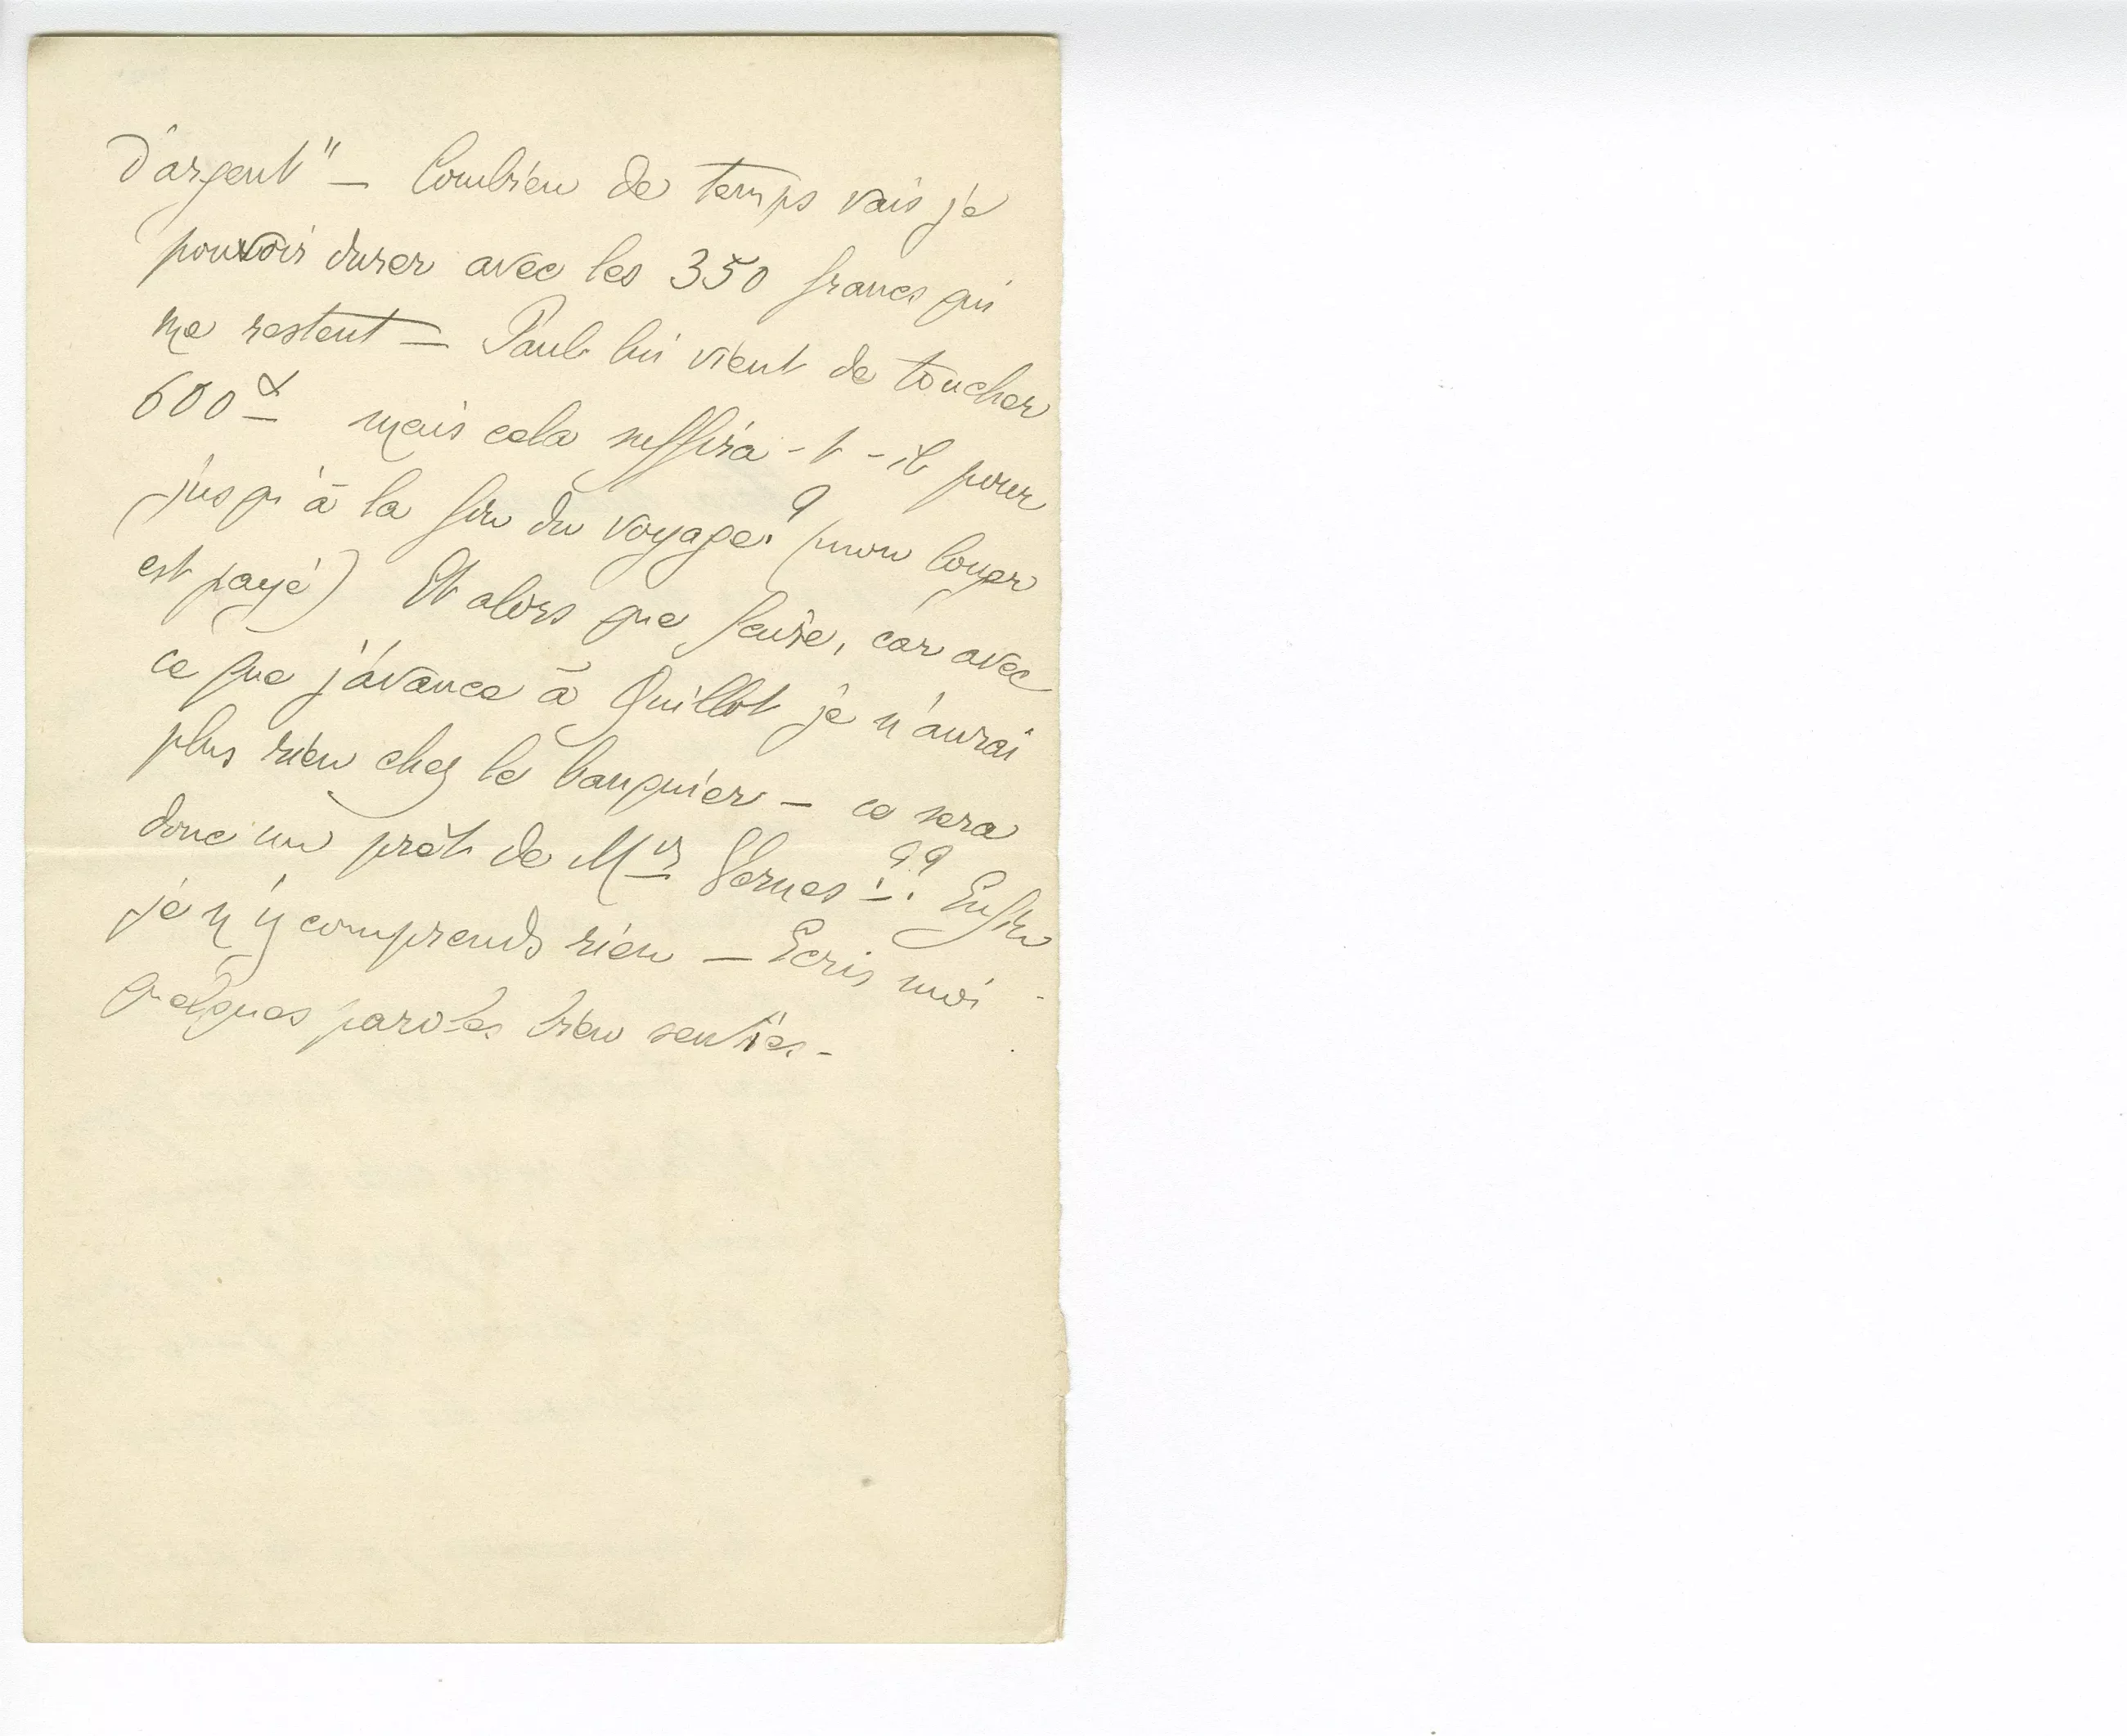 d'argent" — Combien de temps vais je
pouvoir durer avec les 350 francs qui
me restent — Paul lui vient de toucher
600 mais cela suffira-t-il pour
jusqu'à la fin du voyage? (mon loyer
est payé) Et alors que faire, car avec
ce que j'avance à Guillot je n'aurai
plus rien chez le banquier — ce sera
donc un prêt de Mr Vernes ?? Enfin
je n'y comprends rien — Ecris moi
quelques paroles bien senties —